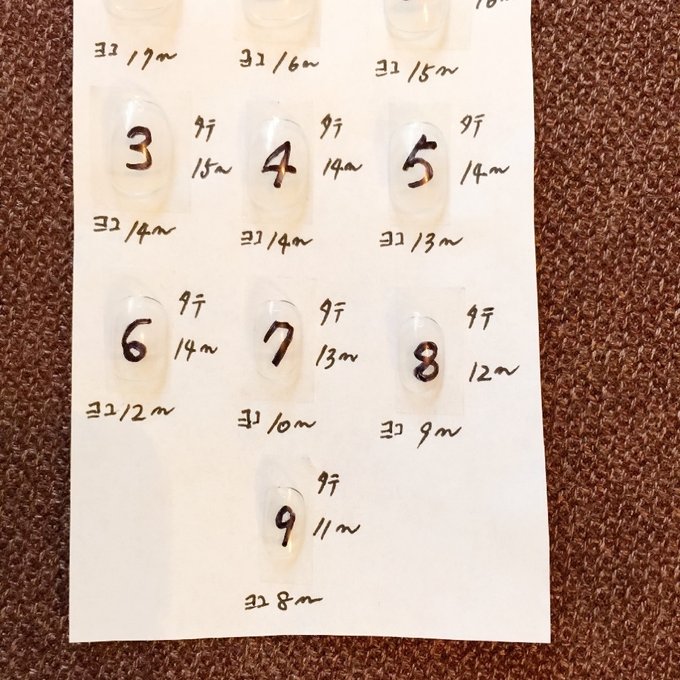 ヨコ 17m
ヨコ 16m
ヨコ 15m
3
タテ
15m
ヨコ 14m
4
タテ
14m
ヨコ 14m
5
タテ
14m
ヨコ 13m
6
タテ
14m
ヨコ 12m
7
タテ
13m
ヨコ 10m
8
タテ
12m
ヨコ 9m
9
タテ
11m
ヨコ 8m